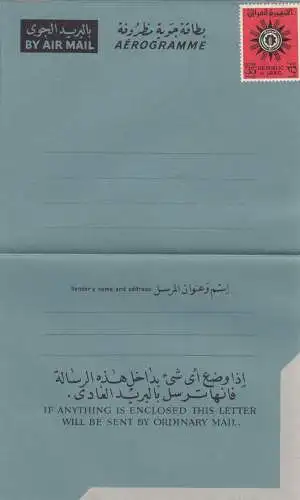 بالبريد الجوي
BY AIR MAIL
بطاقة جوية مظروفة
AÉROGRAMME
الجمهورية العراقية
REPUBLIC
of IRAQ
Sender's name and address
إسم وعنوان المرسل
إذا وضع أى شئ بداخل هذه الرسالة
فانها ترسل بالبريد العادى.
IF ANYTHING IS ENCLOSED THIS LETTER
WILL BE SENT BY ORDINARY MAIL.